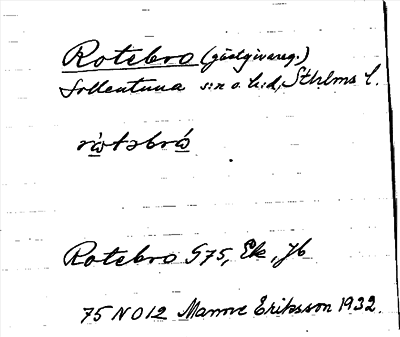 Rotebro (gästgivareg.)
Sollentuna s:n o. h:d, Sthlms l.
rὼtəbrὼ
Rotebro G75, Ek, Jb
75 NO12 Manne Eriksson 1932.